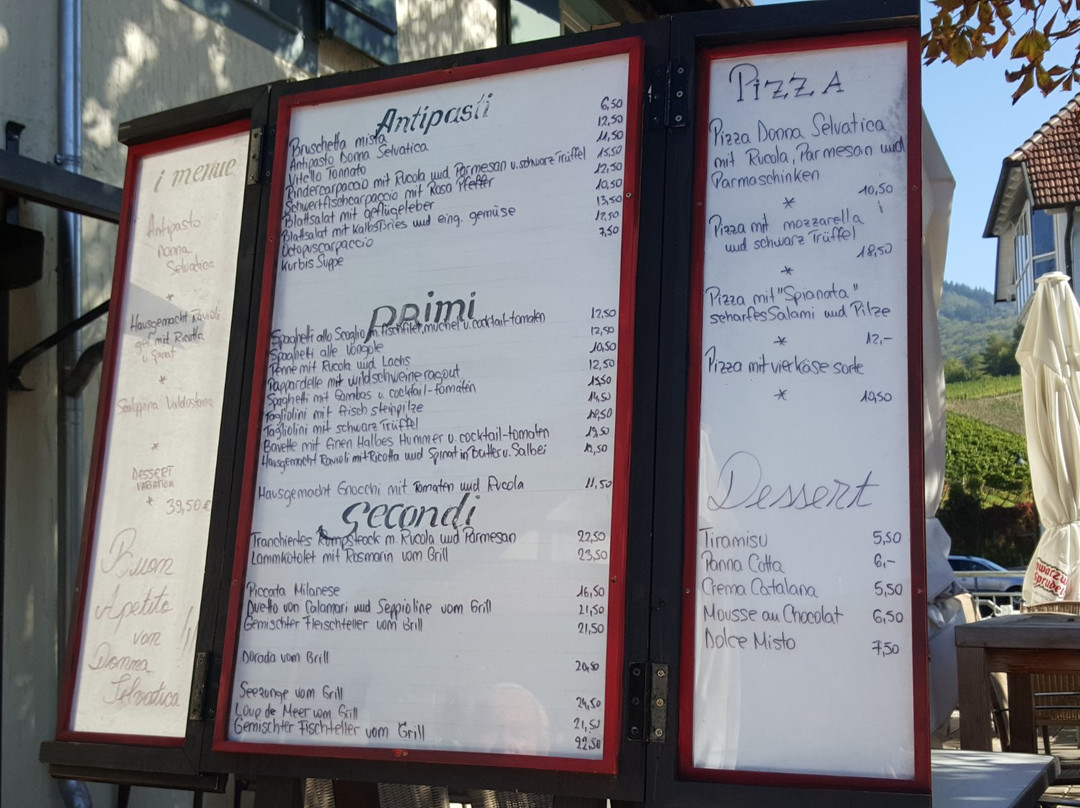 i menue
Antipasto
Donna
Selvatica
*
Hausgemacht Ravioli
gef mit Ricotta
u. Spinat
*
Scaloppina Valdostana
*
DESSERT
VARIATION
* 39,50€
Buon
Apetito
vom !!
Donna
Selvatica
Antipasti
Bruschetta mista 6,50
Antipasto Donna Selvatica 12,50
Vitello Tonnato 11,50
Rindercarpaccio mit Rucola und Parmesan u. schwarz Trüffel 15,50
Schwertfischcarpaccio mit Rosa Pfeffer 12,50
Blattsalat mit geflügeleber 10,50
Blattsalat mit Kalbsbries und eing. gemüse 13,50
Octopuscarpaccio 12,50
Kürbis Suppe 7,50
PRIMI
Spaghetti allo Scoglio m. fischfilet, muchel u. cocktail-tomaten 12,50
Spaghetti alle Vongole 12,50
Penne mit Rucola und Lachs 10,50
Pappardelle mit wildschweine ragout 12,50
Spaghetti mit Gambas u. cocktail-tomaten 15,50
Tagliolini mit frisch steinpilze 14,50
Tagliolini mit schwarz Trüffel
Bavette mit Einen Halbes Hummer u. cocktail-tomaten 19,50
Hausgemacht Ravioli mit Ricotta und Spinat in Butter u. Salbei 12,50
Hausgemacht Gnocchi mit Tomaten und Rucola 11,50
Secondi
Tranchiertes Rumpsteack m. Rucola und Parmesan 22,50
Lammkotelet mit Rosmarin vom Grill 23,50
Piccata Milanese 16,50
Duetto von Calamari und Seppioline vom Grill 21,50
Gemischter Fleischteller vom Grill 21,50
Dorada vom Grill 20,50
Seezunge vom Grill 24,50
Loup de Meer vom Grill 21,50
Gemischter Fischteller vom Grill 22,50
PIZZA
Pizza Donna Selvatica
mit Rucola, Parmesan und
Parmaschinken
* 10,50
Pizza mit mozzarella
und schwarz Trüffel
* 18,50
Pizza mit "Spianata"
scharfes Salami und Pilze
* 12,-
Pizza mit vierkäse sorte
* 10,50
Dessert
Tiramisu 5,50
Panna Cotta 6,-
Crema Catalana 5,50
Mousse au Chocolat 6,50
Dolce Misto 7,50
Sprudel